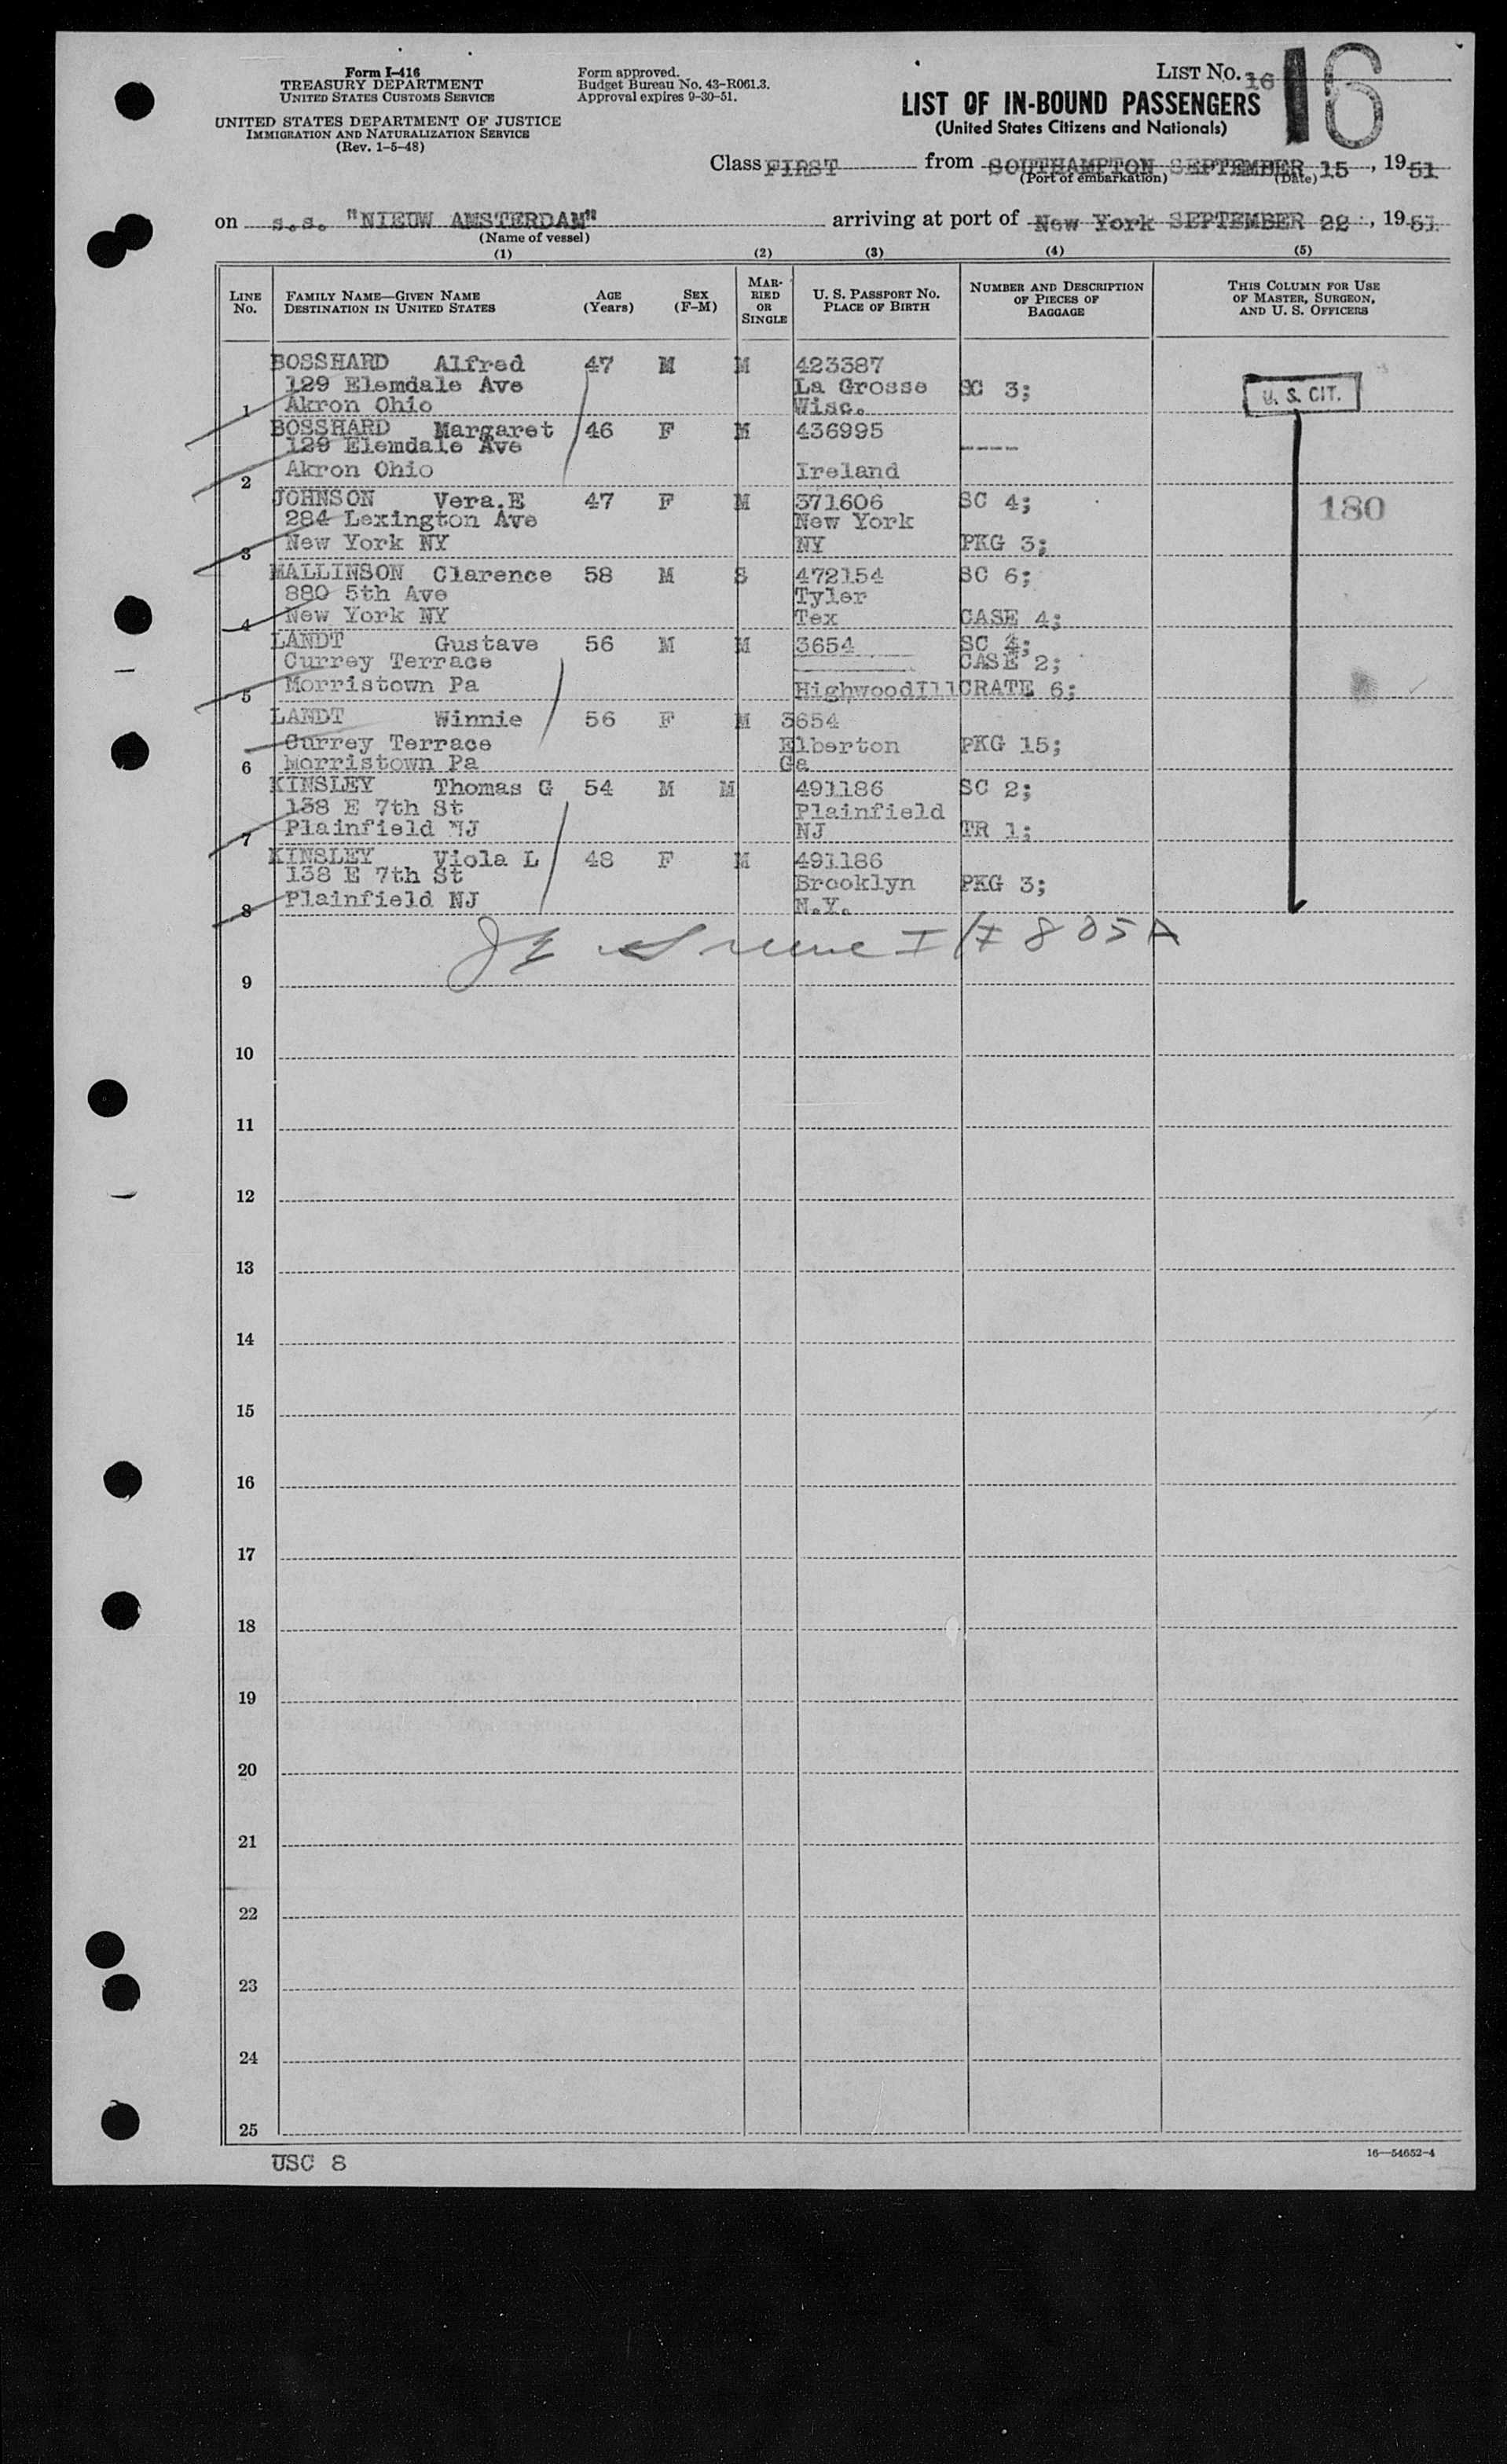 Form I-416
TREASURY DEPARTMENT
UNITED STATES CUSTOMS SERVICE
UNITED STATES DEPARTMENT OF JUSTICE
IMMIGRATION AND NATURALIZATION SERVICE
(Rev. 1-5-48)
Form approved.
Budget Bureau No. 43-R061.3.
Approval expires 9-30-51.
LIST NO. 16
16
LIST OF IN-BOUND PASSENGERS
(United States Citizens and Nationals)
Class FIRST from SOUTHAMPTON SEPTEMBER 15, 1951
(Port of embarkation) (Date)
on s.s. "NIEUW AMSTERDAM" arriving at port of New York SEPTEMBER 22, 1951
(Name of vessel)
(1) (2) (3) (4) (5)
LINE NO.
FAMILY NAME—GIVEN NAME
DESTINATION IN UNITED STATES
AGE (Years)
SEX (F-M)
MARRIED OR SINGLE
U. S. PASSPORT NO.
PLACE OF BIRTH
NUMBER AND DESCRIPTION OF PIECES OF BAGGAGE
THIS COLUMN FOR USE OF MASTER, SURGEON, AND U. S. OFFICERS
BOSSHARD Alfred 47 M M 423387
129 Elemdale Ave La Grosse SC 3; U. S. CIT.
1 Akron Ohio Wisc.
BOSSHARD Margaret 46 F M 436995
129 Elemdale Ave ----
2 Akron Ohio Ireland
JOHNSON Vera.E 47 F M 371606 SC 4; 180
284 Lexington Ave New York
3 New York NY NY PKG 3;
MALLINSON Clarence 58 M S 472154 SC 6;
880 5th Ave Tyler
4 New York NY Tex CASE 4;
LANDT Gustave 56 M M 3654 SC 4;
Currey Terrace CASE 2;
5 Morristown Pa HighwoodIll CRATE 6;
LANDT Winnie 56 F M 3654
Currey Terrace Elberton PKG 15;
6 Morristown Pa Ga
KINSLEY Thomas G 54 M M 491186 SC 2;
138 E 7th St Plainfield
7 Plainfield NJ NJ TR 1;
KINSLEY Viola L 48 F M 491186
138 E 7th St Brooklyn PKG 3;
8 Plainfield NJ N.Y.
805A
9
10
11
12
13
14
15
16
17
18
19
20
21
22
23
24
25
USC 8
16—54652-4